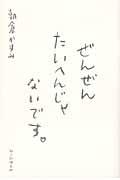 朝倉かすみ
ぜんぜん
たいへんじゃ
ないです。